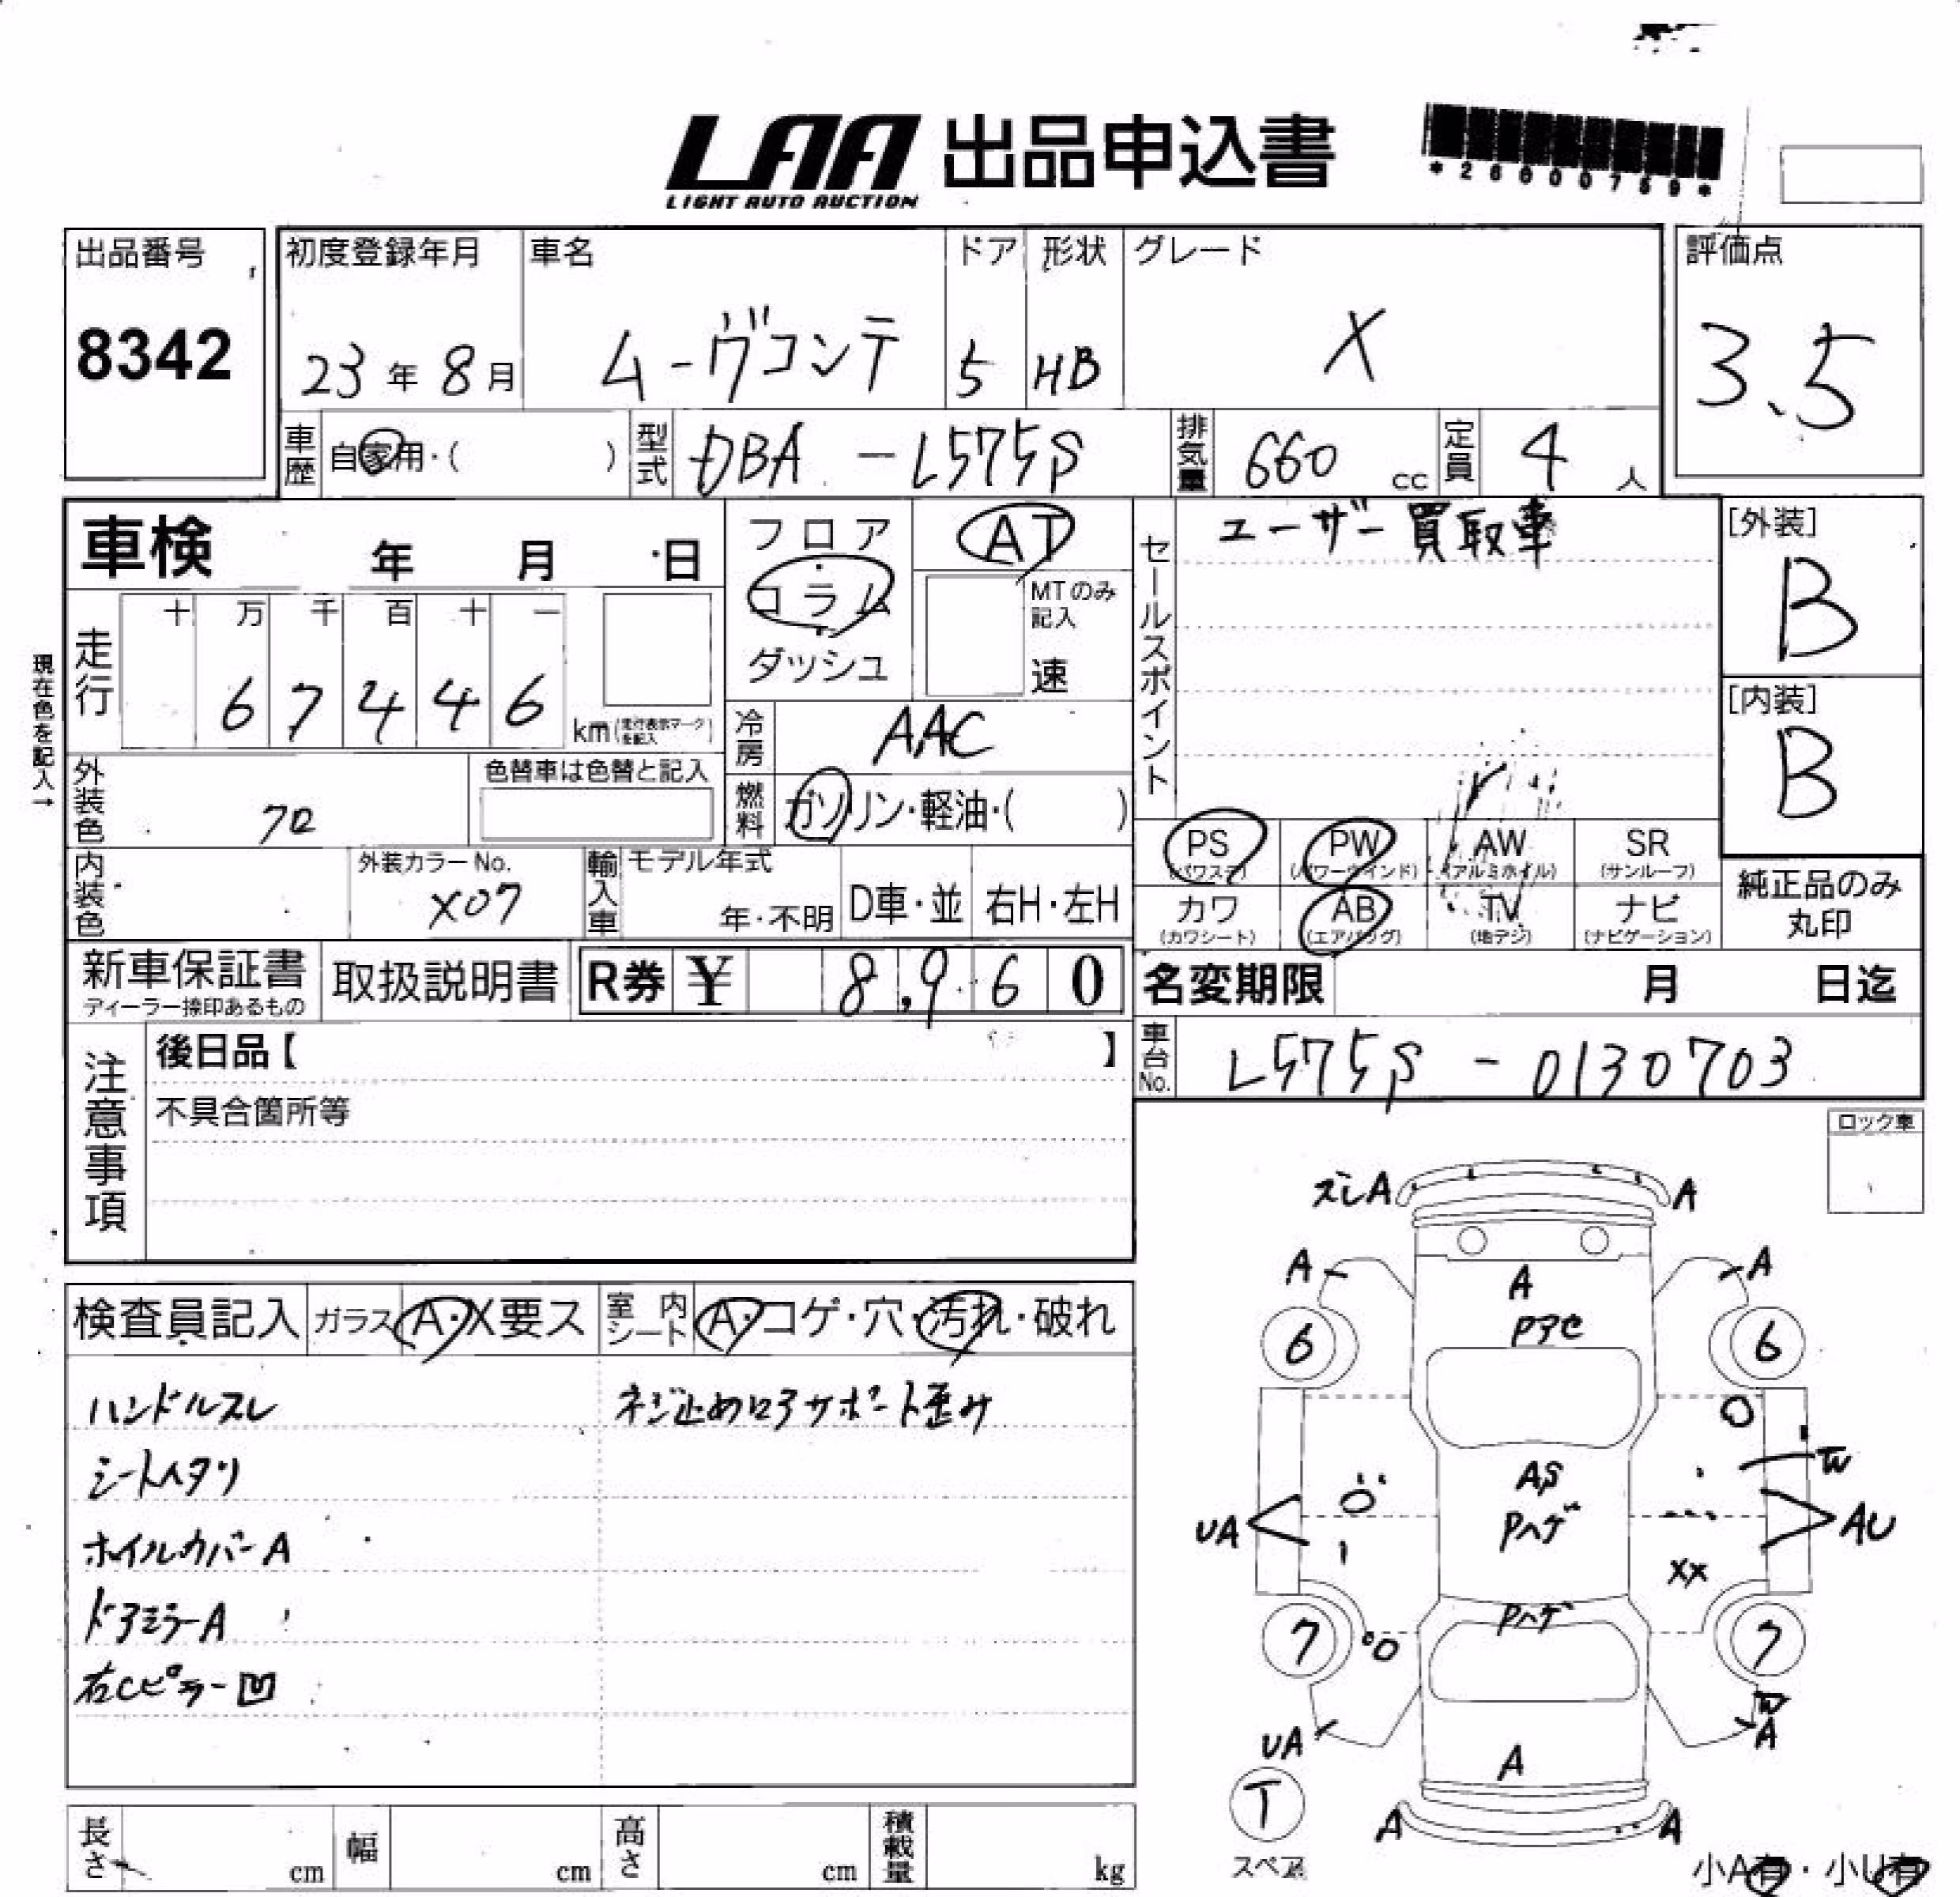 LAA 出品申込書
LIGHT AUTO AUCTION
*26000759*
出品番号
8342
初度登録年月
23年8月
車名
ムーヴコンテ
ドア
5
形状
HB
グレード
X
評価点
3.5
車歴
自家用・( )
型式
DBA-L575S
排気量
660 cc
定員
4 人
車検 年 月 日
フロア
コラム
ダッシュ
AT
MTのみ記入
速
走行
十 万 千 百 十 一
6 7 4 4 6
km(走行表示マークを記入)
現在色を記入→
冷房
AAC
燃料
ガソリン・軽油・( )
外装色
色替車は色替と記入
内装色
外装カラーNo.
X07
輸入車
モデル年式
年・不明
D車・並
右H・左H
セールスポイント
ユーザー買取車
[外装]
B
[内装]
B
PS
(パワステ)
PW
(パワーウインド)
AW
(アルミホイル)
SR
(サンルーフ)
カワ
(カワシート)
AB
(エアバッグ)
TV
(地デジ)
ナビ
(ナビゲーション)
純正品のみ
丸印
新車保証書
ディーラー捺印あるもの
取扱説明書
R券 ¥ 8,960
名変期限 月 日迄
注意事項
後日品【 】
不具合箇所等
車台No.
L575S-0130703
ロック車
検査員記入
ガラス A・X要ス
室内シート A・コゲ・穴・汚れ・破れ
ハンドルスレ
シートヘタリ
ホイルカバーA
ドアミラーA
右Cピラー凹
ネジ止めロアサポート歪み
ズレA
A
A
A
A
Pアセ
6
6
W
AS
Pハゲ
UA
AU
XX
Pハゲ
7
7
W
A
UA
A
T
スペア
A
A
小A有・小U有
長さ cm
幅 cm
高さ cm
積載量 kg